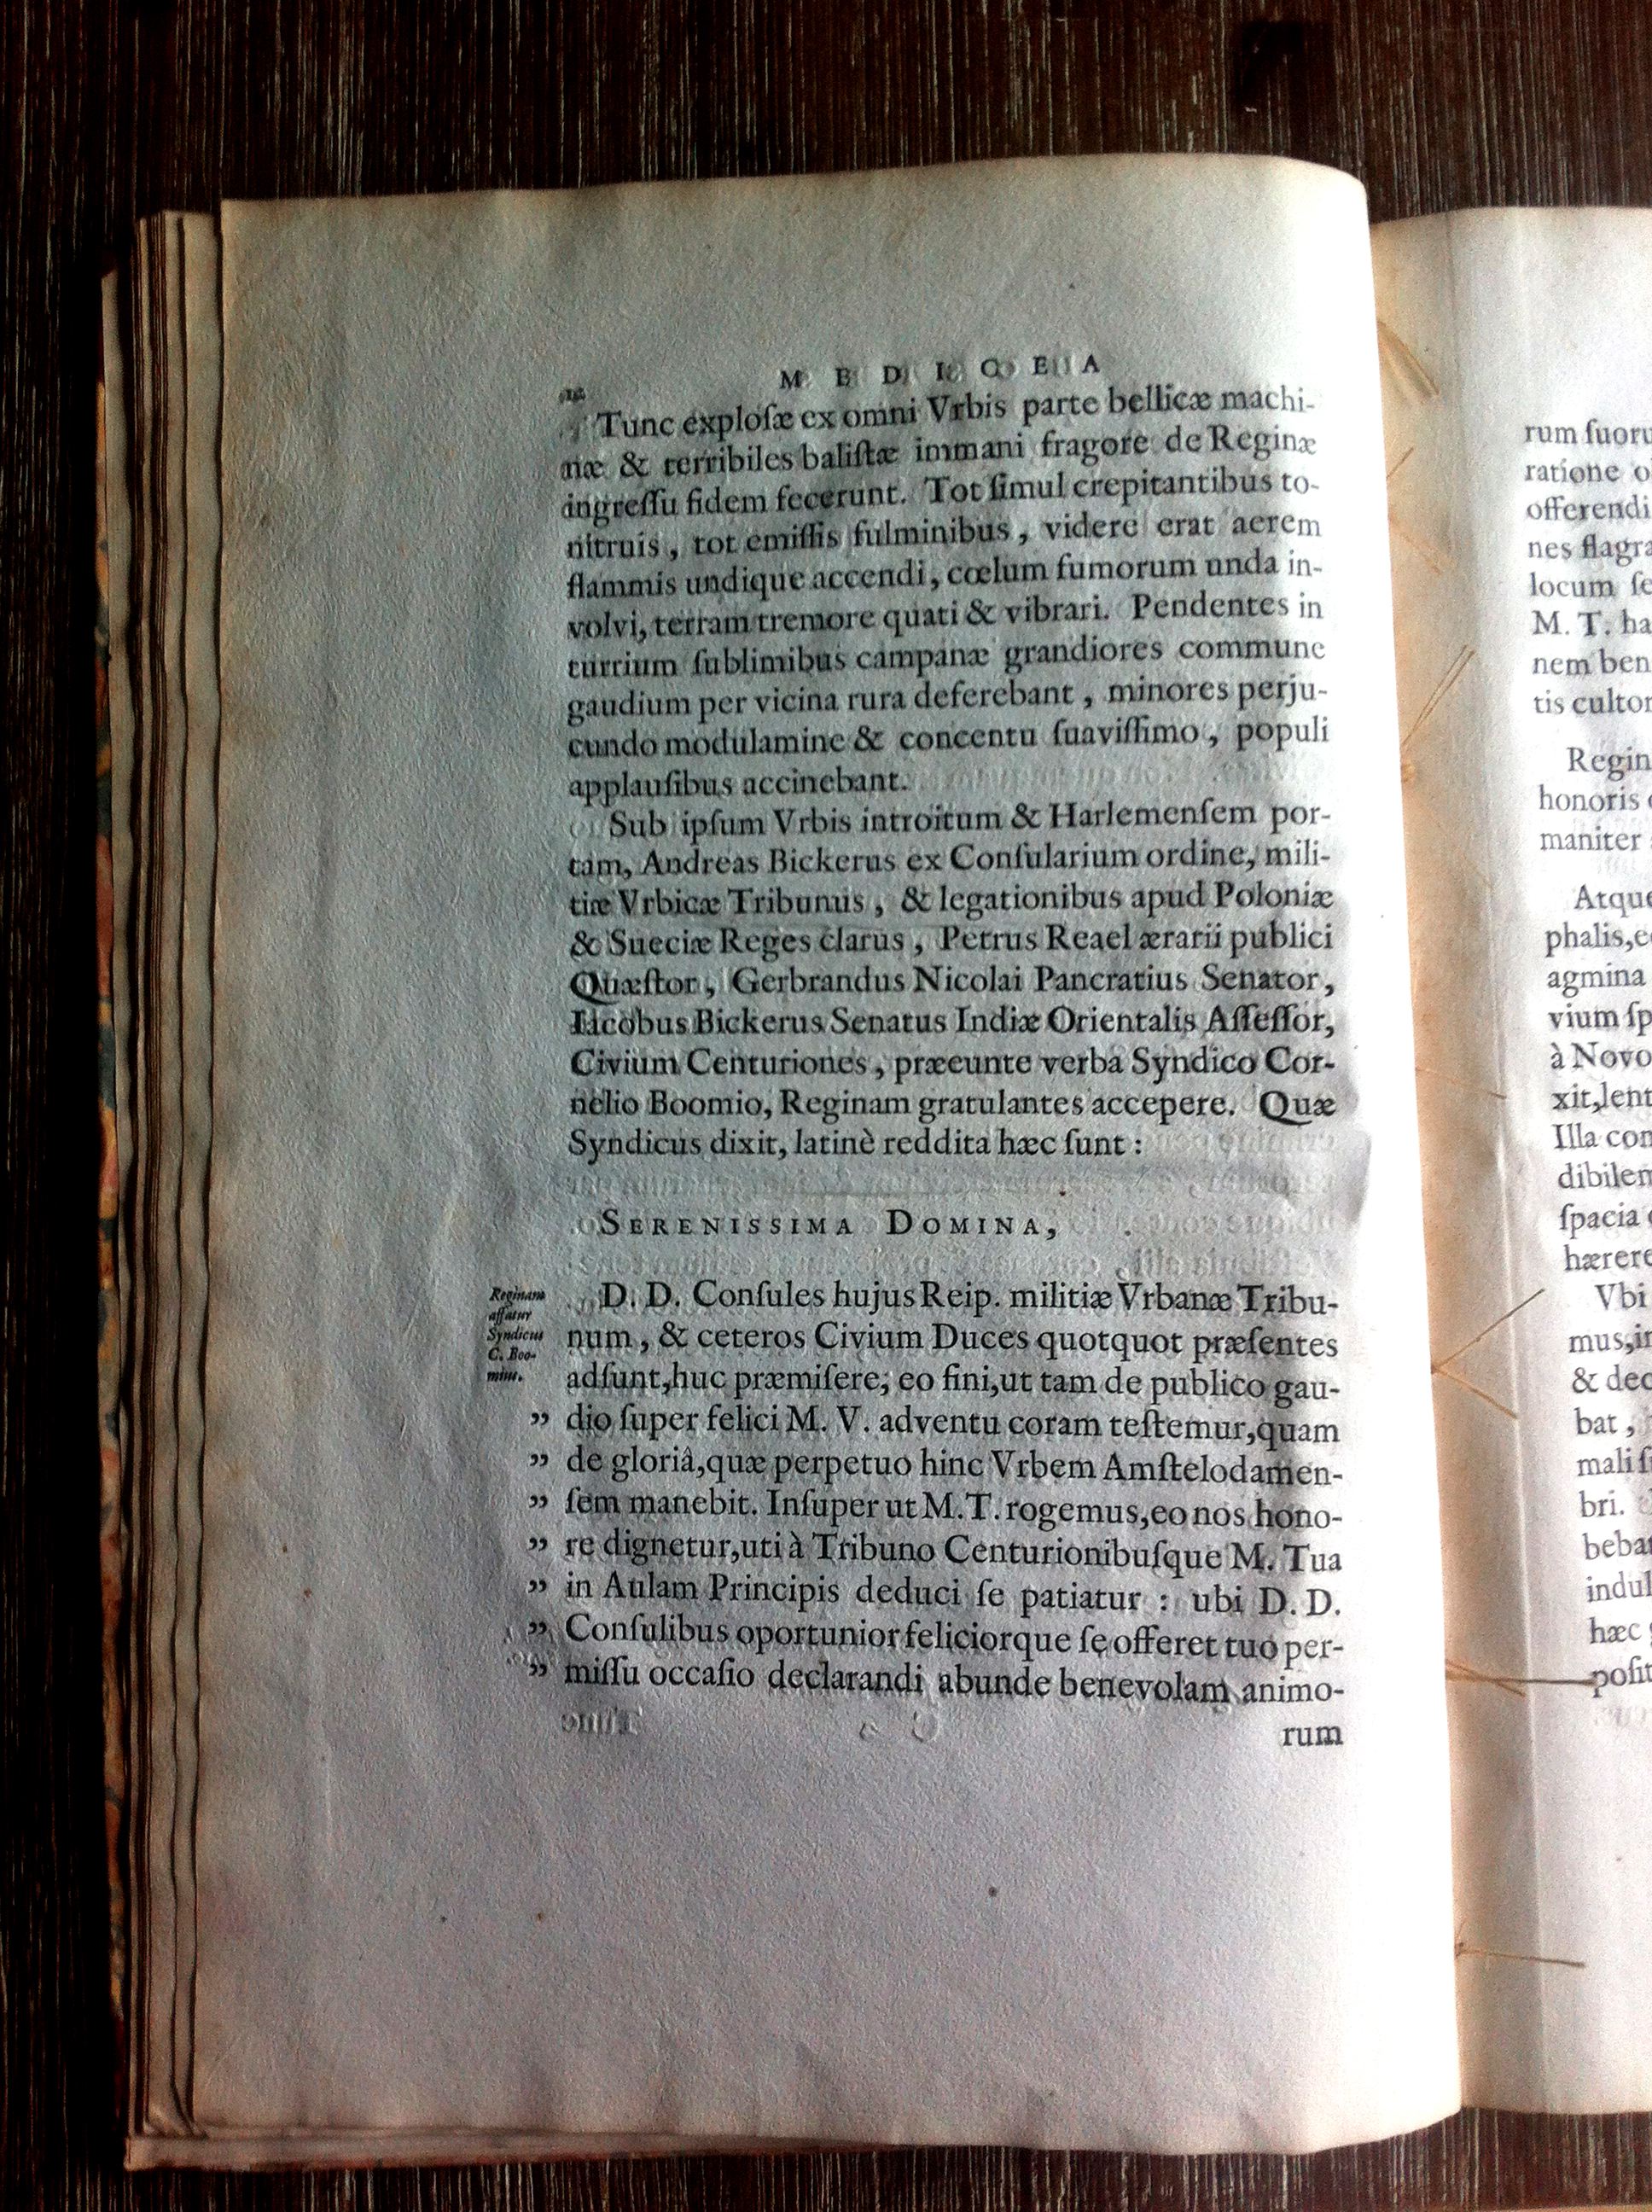 MEDICEA
Tunc explosæ ex omni Vrbis parte bellicæ machi-
næ & terribiles balistæ immani fragore de Reginæ
ingressu fidem fecerunt. Tot simul crepitantibus to-
nitruis, tot emissis fulminibus, videre erat aerem
flammis undique accendi, cœlum fumorum unda in-
volvi, terram tremore quati & vibrari. Pendentes in
turrium sublimibus campanæ grandiores commune
gaudium per vicina rura deferebant, minores perju-
cundo modulamine & concentu suavissimo, populi
applausibus accinebant.
Sub ipsum Vrbis introitum & Harlemensem por-
tam, Andreas Bickerus ex Consularium ordine, mili-
tiæ Vrbicæ Tribunus, & legationibus apud Poloniæ
& Sueciæ Reges clarus, Petrus Reael ærarii publici
Quæstor, Gerbrandus Nicolai Pancratius Senator,
Iacobus Bickerus Senatus Indiæ Orientalis Assessor,
Civium Centuriones, præeunte verba Syndico Cor-
nelio Boomio, Reginam gratulantes accepere. Quæ
Syndicus dixit, latinè reddita hæc sunt:
SERENISSIMA DOMINA,
Reginam
affatur
Syndicus
C. Boo-
mius.
D. D. Consules hujus Reip. militiæ Vrbanæ Tribu-
num, & ceteros Civium Duces quotquot præsentes
adsunt, huc præmisere, eo fini, ut tam de publico gau-
” dio super felici M. V. adventu coram testemur, quam
” de gloriâ, quæ perpetuo hinc Vrbem Amstelodamen-
” sem manebit. Insuper ut M. T. rogemus, eo nos hono-
” re dignetur, uti à Tribuno Centurionibusque M. Tua
” in Aulam Principis deduci se patiatur : ubi D. D.
” Consulibus oportunior feliciorque se offeret tuo per-
” missu occasio declarandi abunde benevolam animo-
rum
rum suoru
ratione o
offerendi
nes flagra
locum se
M. T. ha
nem ben
tis cultor
Regin
honoris
maniter
Atque
phalis, e
agmina
vium sp
à Novo
xit, lent
Illa con
dibilem
spacia
hærere
Vbi
mus, in
& dec
bat,
mali s
bri.
bebat
indul
hæc
posit